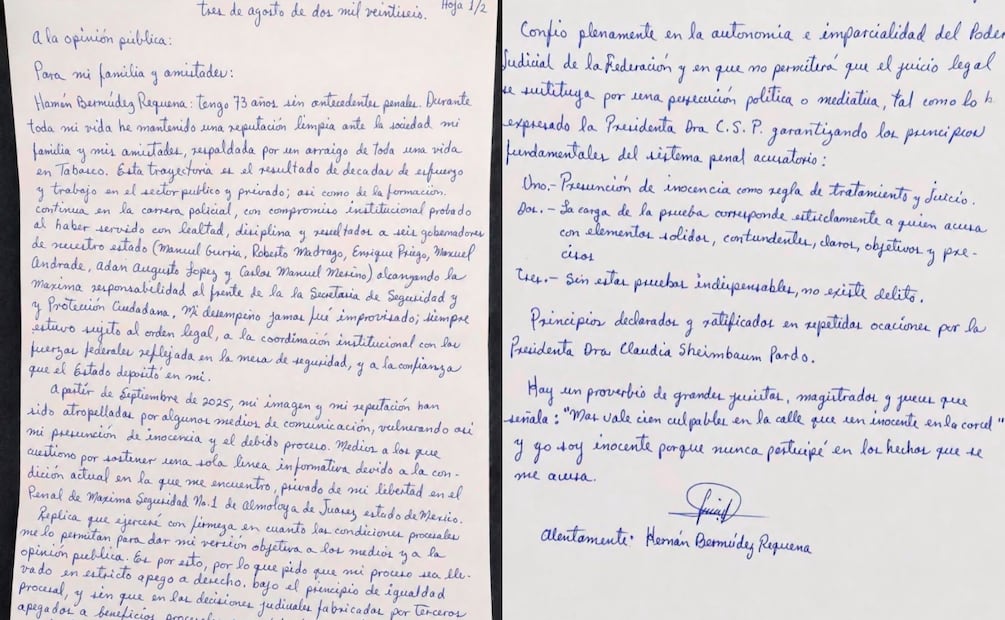 tres de agosto de dos mil veintiseis.
Hoja 1/2
A la opinión pública:
Para mi familia y amistades:
Hernán Bermúdez Requena: tengo 73 años sin antecedentes penales. Durante
toda mi vida he mantenido una reputación limpia ante la sociedad mi
familia y mis amistades, respaldada por un arraigo de toda una vida
en Tabasco. Esta trayectoria es el resultado de decadas de esfuerzo
y trabajo en el sector publico y privado; asi como de la formación.
continua en la carrera policial, con compromiso institucional probado
al haber servido con lealtad, disciplina y resultados a seis gobernadores
de nuestro estado (Manuel Gurria, Roberto Madrazo, Enrique Priego, Manuel
Andrade, Adan Augusto Lopez y Carlos Manuel Merino) alcanzando la
maxima responsabilidad al frente de la la Secretaria de Seguridad y
y Protección Ciudadana, Mi desempeño jamas fué improvisado; siempre
estuvo sujeto al orden legal, a la coordinación institucional con las
fuerzas federales reflejada en la mesa de seguridad, y a la confianza
que el Estado depositó en mi.
A partir de Septiembre de 2025, mi imagen y mi reputación han
sido atropelladas por algunos medios de comunicación, vulnerando asi
mi presunción de inocencia y el debido proceso. Medios a los que
cuestiono por sostener una sola linea informativa devido a la con-
dición actual en la que me encuentro, privado de mi libertad en el
Penal de Maxima Seguridad No. 1 de Almoloya de Juarez estado de Mexico.
Replica que ejerceré con firmeza en cuanto las condiciones procesales
me lo permitan para dar mi versión objetiva a los medios y a la
opinión publica. Es por esto, por lo que pido que mi proceso sea lle-
vado en estricto apego a derecho. bajo el principio de igualdad
procesal, y sin que en las decisiones judiciales fabricadas por terceros
apegados a beneficios
Confio plenamente en la autonomia e imparcialidad del Poder
Judicial de la Federación y en que no permitirá que el juicio legal
se sustituya por una persecución politica o mediatica, tal como lo h
expresado la Presidenta Dra C.S.P. garantizando los principios
fundamentales del sistema penal acusatorio:
Uno.- Presunción de inocencia como regla de tratamiento y Juicio.
Dos.- La carga de la prueba corresponde estrictamente a quien acusa
con elementos solidos, contundentes, claros, objetivos y pre-
cisos
Tres.- Sin estas pruebas indispensables, no existe delito.
Principios declarados y ratificados en repetidas ocaciones por la
Presidenta Dra Claudia Sheimbaum Pardo.
Hay un proverbio de grandes juristas, magistrados y jueces que
señala: "Mas vale cien culpables en la calle que un inocente en la carcel"
y yo soy inocente porque nunca participé en los hechos que se
me acusa.
Atentamente: Hernán Bermúdez Requena